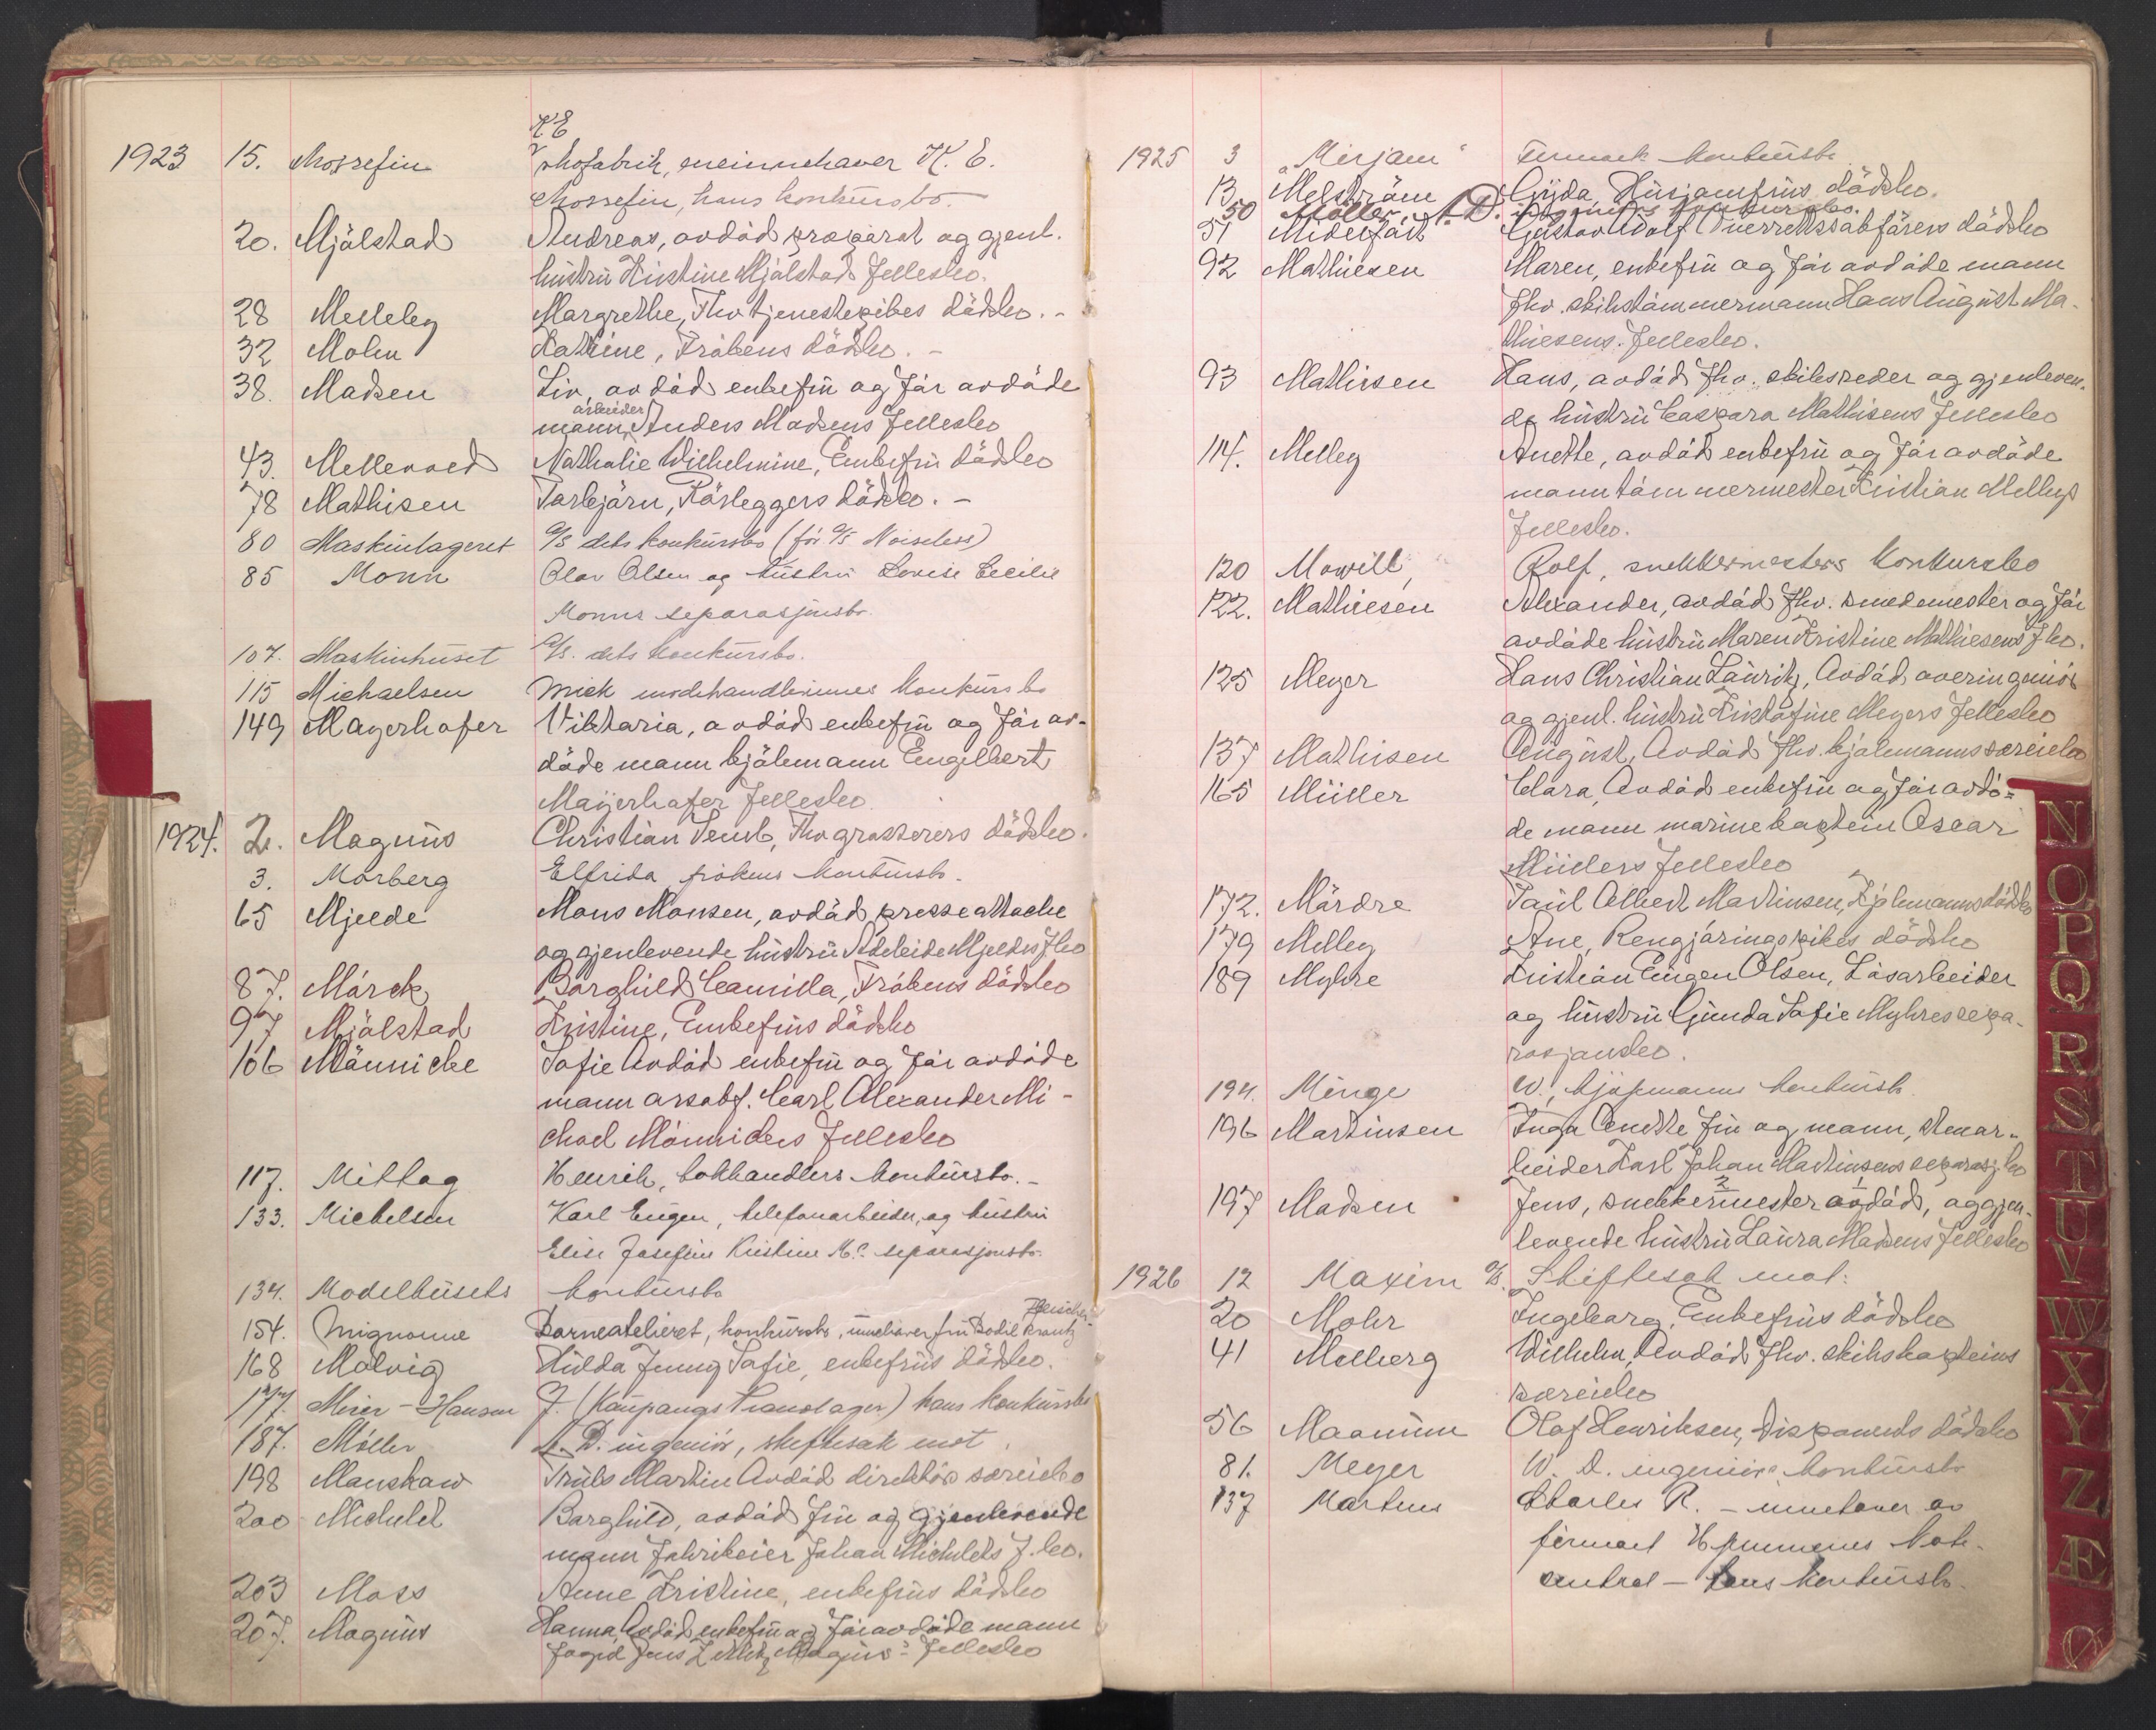 K E
1923 15. Mossefin skofabrik, eneinnehaver K. E.
Mossefin, hans konkursbo.
20. Mjålstad Andreas, avdöd og gjenl.
hustru Kirstine Mjålstads fellesbo.
28 Melleby Margrethe, Fhv tjenestepikes dödsbo. -
32 Mohn Kathine, Frökens dödsbo. -
38. Madsen Liv, avdöd enkefru og för avdöde
arbeider
mann Anders Madsens fellesbo
43. Mellerved Nathalie Wilhelmine, Enkefru dödsbo
78 Mathisen Torbjörn, Rörleggers dödsbo. -
80 Maskinlageret A/S dets konkursbo (för A/S Noiseless)
85 Monn Olav Olsen og hustru Lovise Cecilie
Monns separasjonsbo.
107. Maskinhuset A/S. dets konkursbo.
115 Michaelsen Mick modehandlerinnes konkursbo
149 Mayerhofer Viktoria, avdöd enkefru og för av-
döde mann kjölemann Engelbert
Mayerhofer fellesbo.
1924. 2. Magnus Christian Temb, Fhv grosserers dödsbo.
3. Morberg Elfrida frökens konkursbo.
65 Mjelde Mons Monsen, avdöd presseattache
og gjenlevende hustru Adeleide Mjeldes f.bo
87. Mörck Borghild Camilla, Frökens dödsbo
97 Mjölstad Kristine, Enkefrus dödsbo
106 Männicke Sofie Avdöd enkefru og för avdöde
mann Carl Alexander Mi-
chael Männickes fellesbo
117. Mittag Henrik, bokhandlers konkursbo. -
133. Mickelsen Karl Eugen, telefonarbeider, og hustru
Elise Josefine Kristine M.s separasjonsbo.
134. Modelhusets konkursbo
154. Mignonne Barneatelieret, konkursbo, innehaver fru Bodil Krantz
168 Molvig Hilda Jenny Sofie, enkefrus dödsbo.
177. Meier-Hansen J. (Kaupangs Pianolager) hans konkursbo
187. Möller A. D. ingeniör, skiftesak mot.
198 Manskow Truls Martin Avdöd direktörs særeiebo
200 Michelet Borghild, avdöd fru og gjenlevende
mann fabrikeier Johan Michelets f. bo.
203 Moss Anne Kristine, enkefrus dödsbo
207. Magnus Hanna, Avdöd enkefru og för avdöde mann
Jens Magnus' fellesbo
1925 3 "Mirjam" Firmaet konkursbo
13. Melström Gyda, Husjomfrus dödsbo.
50 Möller, A. D. ingeniörs konkursbo.
51 Midelfart Gustav Adolf Overrettssakförers dödsbo
92 Mathiesen Maren, enkefru og för avdöde mann
fhv. skibstömmermann Hans August Ma-
thiesens fellesbo.
93 Mathisen Hans, avdöd fhv. skibsreder og gjenleven-
de hustru Caspara Mathisens fellesbo
114. Melleby Anette, avdöd enkefru og för avdöde
mann tömmermester Kristian Mellebys
fellesbo.
120 Mowill, Rolf, snekkermesters konkursbo
122. Mathiesen Alexander, avdöd fhv. smedemester og för
avdöde hustru Maren Kristine Mathiesens f.bo.
125 Meyer Hans Christian Lauritz, Avdöd overingeniör
og gjenl. hustru Kristofine Meyers fellesbo
137 Mathisen August, Avdöd fhv. kjölemanns særeiebo
165 Müller Clara, Avdöd enkefru og för avdö-
de mann marinekaptein Oscar
Müllers fellesbo
172. Mårdre Paul Albert Martinsen, Kjölemanns dödsbo
179 Melleby Ane, Rengjöringspikes dödsbo
189 Myhre Kristian Eugen Olsen, Låsarbeider
og hustru Gunda Sofie Myhres sepa-
rasjonsbo.
194. Minge W., kjöpmanns konkursbo.
196 Martinsen Inga Anette fru og mann, stenar-
beider Karl Johan Martinsens separasj. bo
197 Madsen Jens, snekkermester avdöd, og gjen-
levende hustru Laura Madsens fellesbo
1926 12 Maxim A/S. Skiftesak mot:
20 Mohr Ingeborg, Enkefrus dödsbo
41 Melberg Wilhelm, Avdöd fhv. skibskapteins
særeiebo
56 Maanum Olaf Henriksen, Disponents dödsbo
81. Meyer W. D. ingeniörs konkursbo
137 Martens Charles R. - innehaver av
firmaet Hjemmenes Mat-
sentral - hans konkursbo.
N
O
P
Q
R
S
T
U
V
W
X
Y
Z
Æ
Ø